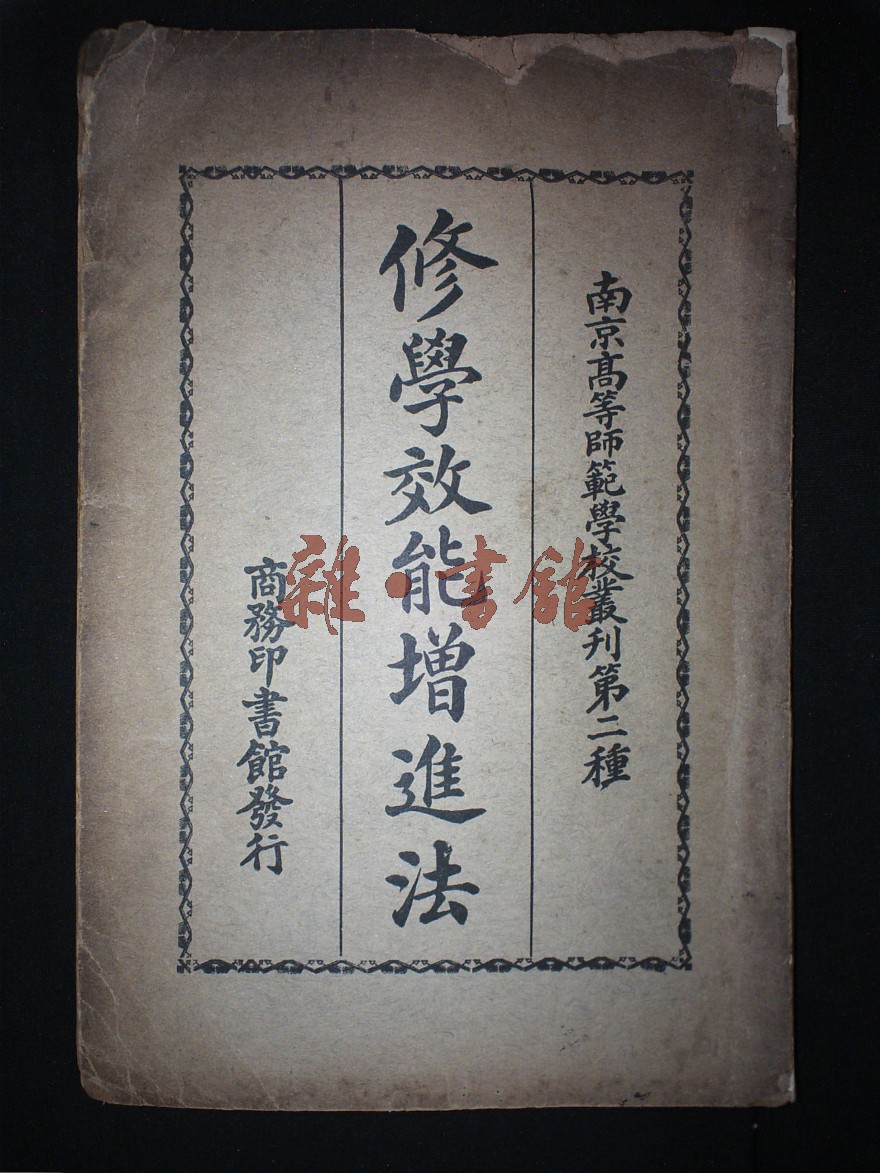 南京高等師範學校叢刊第二種
修學效能增進法
商務印書館發行
雜·書館